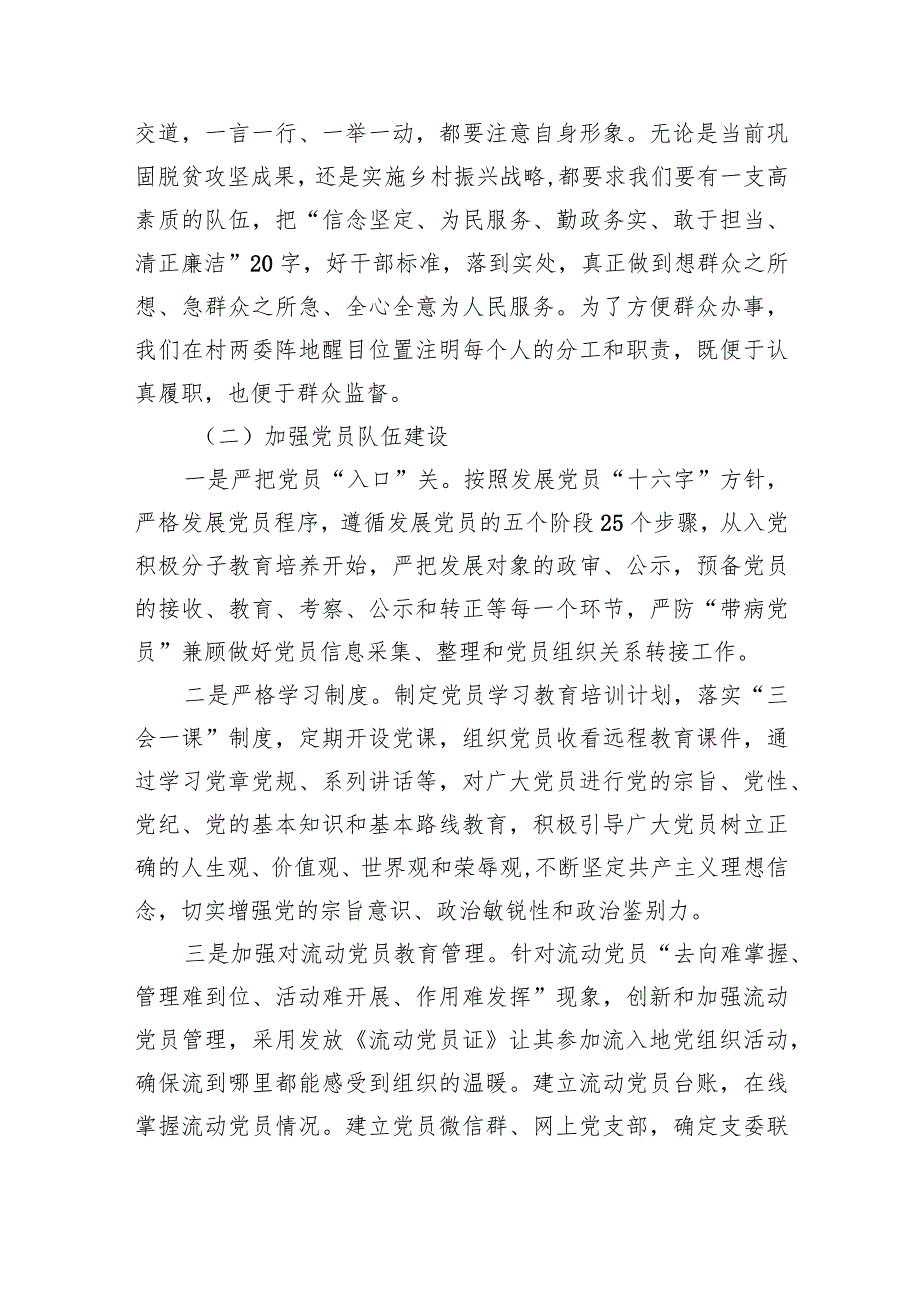 交道，一言一行、一举一动，都要注意自身形象。无论是当前巩
固脱贫攻坚成果，还是实施乡村振兴战略,都要求我们要有一支高
素质的队伍，把“信念坚定、为民服务、勤政务实、敢于担当、
清正廉洁”20字，好干部标准，落到实处，真正做到想群众之所
想、急群众之所急、全心全意为人民服务。为了方便群众办事，
我们在村两委阵地醒目位置注明每个人的分工和职责，既便于认
真履职，也便于群众监督。
（二）加强党员队伍建设
一是严把党员“入口”关。按照发展党员“十六字”方针，
严格发展党员程序，遵循发展党员的五个阶段25个步骤，从入党
积极分子教育培养开始，严把发展对象的政审、公示，预备党员
的接收、教育、考察、公示和转正等每一个环节，严防“带病党
员”兼顾做好党员信息采集、整理和党员组织关系转接工作。
二是严格学习制度。制定党员学习教育培训计划，落实“三
会一课”制度，定期开设党课，组织党员收看远程教育课件，通
过学习党章党规、系列讲话等，对广大党员进行党的宗旨、党性、
党纪、党的基本知识和基本路线教育，积极引导广大党员树立正
确的人生观、价值观、世界观和荣辱观,不断坚定共产主义理想信
念，切实增强党的宗旨意识、政治敏锐性和政治鉴别力。
三是加强对流动党员教育管理。针对流动党员“去向难掌握、
管理难到位、活动难开展、作用难发挥”现象，创新和加强流动
党员管理，采用发放《流动党员证》让其参加流入地党组织活动，
确保流到哪里都能感受到组织的温暖。建立流动党员台账，在线
掌握流动党员情况。建立党员微信群、网上党支部，确定支委联